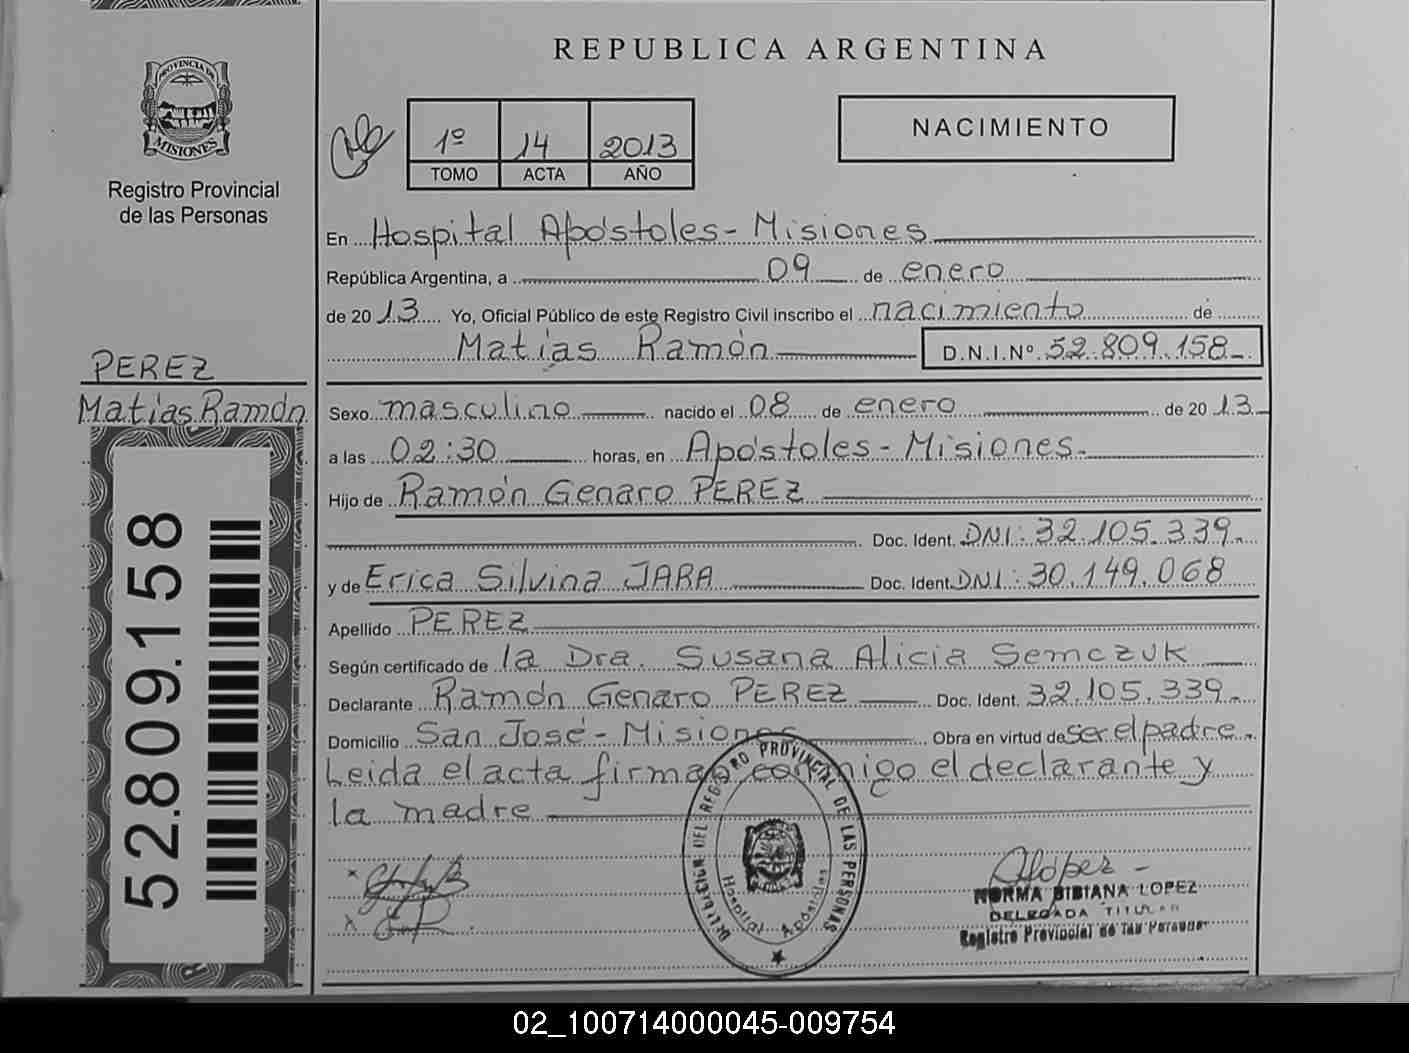 REPUBLICA ARGENTINA
PROVINCIA DE
MISIONES
Registro Provincial
de las Personas
1º 14 2013
TOMO ACTA AÑO
NACIMIENTO
En Hospital Apóstoles - Misiones
República Argentina, a 09 de enero
de 2013 Yo, Oficial Público de este Registro Civil inscribo el nacimiento de
Matías Ramón D.N.I.Nº 52.809.158
PEREZ
Matías Ramón
Sexo masculino nacido el 08 de enero de 2013
a las 02:30 horas, en Apóstoles - Misiones.
Hijo de Ramón Genaro PEREZ
Doc. Ident. DNI: 32.105.339
y de Erica Silvina JARA Doc. Ident. DNI: 30.149.068
Apellido PEREZ
Según certificado de la Dra. Susana Alicia Semczuk
Declarante Ramón Genaro PEREZ Doc. Ident. 32.105.339
Domicilio San José - Misiones Obra en virtud de ser el padre.
Leida el acta firman conmigo el declarante y
la madre
52.809.158
DELEGACION DEL REGISTRO PROVINCIAL DE LAS PERSONAS
Hospital Apóstoles
NORMA BIBIANA LOPEZ
DELEGADA TITULAR
Registro Provincial de las Personas
02_100714000045-009754